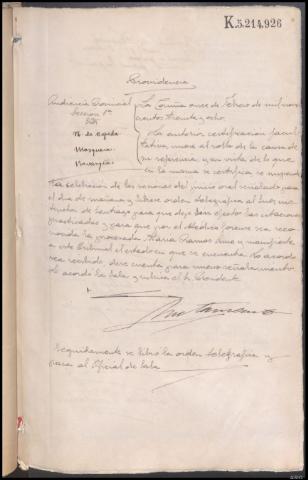 K.5.214.926
Providencia
Audiencia Provincial
Sección 1ª
SSrs
N. de Cepeda
Mosquera
Navarejas
La Coruña once de Febrero de mil nove
cientos treinta y ocho.
La anterior certificación facul
tativa, unase al rollo de la causa de
su referencia, y en vista de lo que
en la misma se certifica se suspende
la celebración de las sesiones del juicio oral señalado para
el dia de mañana y librese orden telegráfica al Juez ins
tructor de Santiago para que deje sin efecto las citaciones
practicadas y para que por el Médico forense sea reco
nocida la procesada María Ramos y manifieste
a este Tribunal el estado en que se encuentra. Lo acordo
sea recibido dese cuenta para nuevo señalamiento.
Lo acordó la Sala y rubrica el Sr. Presidente
Seguidamente se libró la orden telegráfica y
pasa al Oficial de Sala